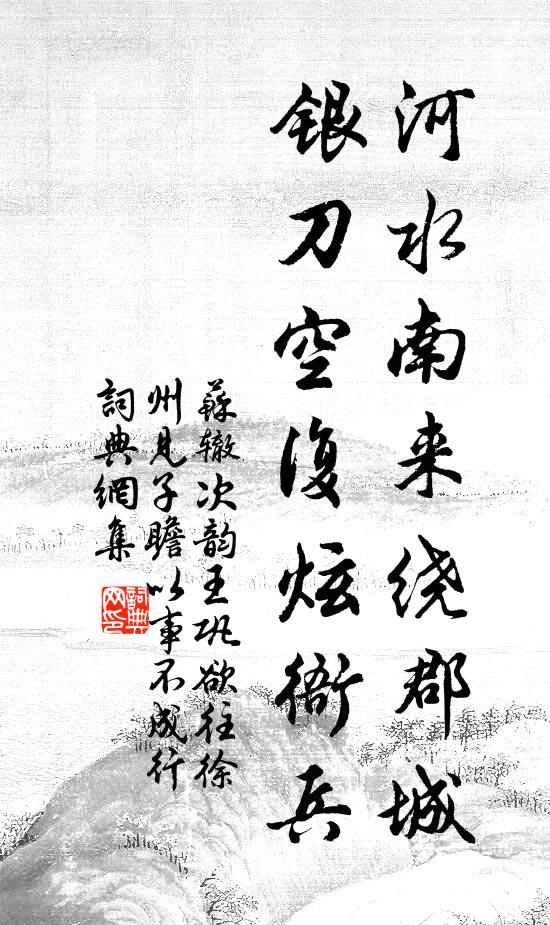 河水南来绕郡城
银刀空復炫衙兵
蘇辙次韵王巩欲往徐
州见子瞻以事不成行
詞典網集
詞典网印